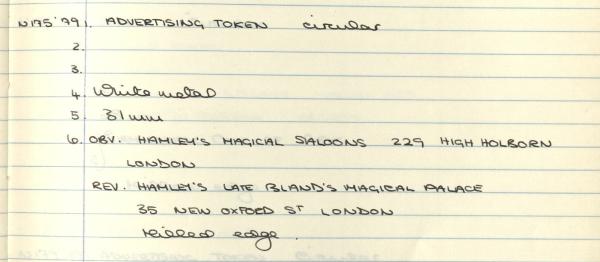 N175'79 1. ADVERTISING TOKEN circular
2.
3.
4. White metal
5. 31mm
6. OBV. HAMLEY'S MAGICAL SALOONS 229 HIGH HOLBORN
LONDON
REV. HAMLEY'S LATE BLAND'S MAGICAL PALACE
35 NEW OXFORD ST LONDON
Milled edge.